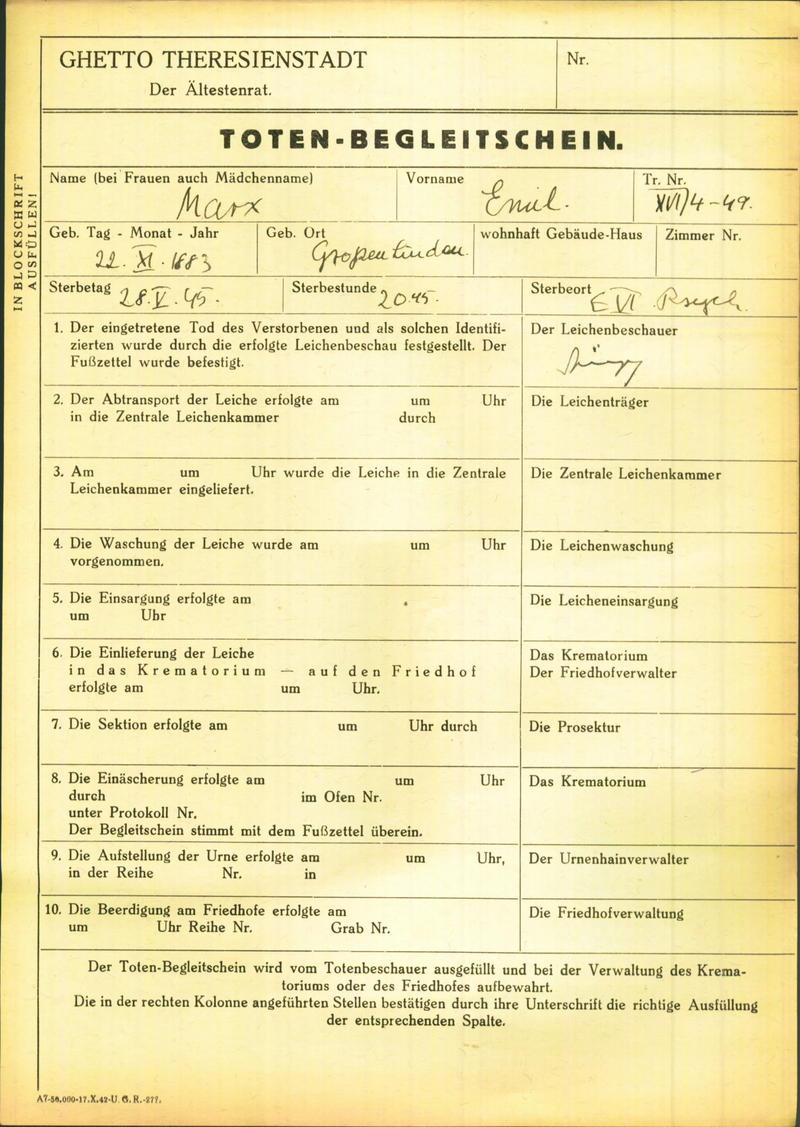 GHETTO THERESIENSTADT
Der Ältestenrat.
Nr.
TOTEN-BEGLEITSCHEIN.
IN BLOCKSCHRIFT
AUSFÜLLEN!
Name (bei Frauen auch Mädchenname)
Marx
Vorname
Emil.
Tr. Nr.
XVI/4-49.
Geb. Tag - Monat - Jahr
22. XI. 1883
Geb. Ort
Großen Linden.
wohnhaft Gebäude-Haus
Zimmer Nr.
Sterbetag
28. V. 45.
Sterbestunde
20.45.
Sterbeort
E VI Psych.
1. Der eingetretene Tod des Verstorbenen und als solchen Identifi-
zierten wurde durch die erfolgte Leichenbeschau festgestellt. Der
Fußzettel wurde befestigt.
Der Leichenbeschauer
2. Der Abtransport der Leiche erfolgte am um Uhr
in die Zentrale Leichenkammer durch
Die Leichenträger
3. Am um Uhr wurde die Leiche in die Zentrale
Leichenkammer eingeliefert.
Die Zentrale Leichenkammer
4. Die Waschung der Leiche wurde am um Uhr
vorgenommen.
Die Leichenwaschung
5. Die Einsargung erfolgte am
um Uhr
Die Leicheneinsargung
6. Die Einlieferung der Leiche
in das Krematorium — auf den Friedhof
erfolgte am um Uhr.
Das Krematorium
Der Friedhofverwalter
7. Die Sektion erfolgte am um Uhr durch
Die Prosektur
8. Die Einäscherung erfolgte am um Uhr
durch im Ofen Nr.
unter Protokoll Nr.
Der Begleitschein stimmt mit dem Fußzettel überein.
Das Krematorium
9. Die Aufstellung der Urne erfolgte am um Uhr,
in der Reihe Nr. in
Der Urnenhainverwalter
10. Die Beerdigung am Friedhofe erfolgte am
um Uhr Reihe Nr. Grab Nr.
Die Friedhofverwaltung
Der Toten-Begleitschein wird vom Totenbeschauer ausgefüllt und bei der Verwaltung des Krema-
toriums oder des Friedhofes aufbewahrt.
Die in der rechten Kolonne angeführten Stellen bestätigen durch ihre Unterschrift die richtige Ausfüllung
der entsprechenden Spalte.
A7-50.000-17.X.42-U. G. R.-277.